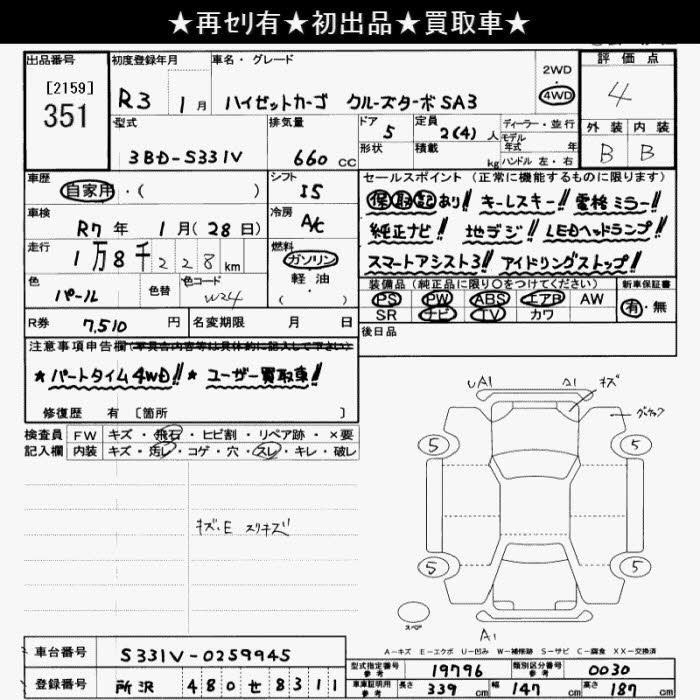 ★再ｾﾘ有★初出品★買取車★
出品番号
[2159]
351
初度登録年月
R3 1月
車名・グレード
ハイゼットカーゴ クルーズターボSA3
2WD
・
4WD
評価点
4
外装 内装
B B
型式
3BD-S331V
排気量
660 CC
ドア
5
形状
定員
2(4)人
積載
kg
ディーラー・並行
モデル
年式 年
ハンドル 左・右
車歴
自家用・( )
シフト
I5
車検
R7年 1月(28日)
冷房
A/C
走行
1万8千228km
燃料
ガソリン
軽油
・
( )
色
パール
色替
色コード
W24
R券 7,510 円
名変期限 月 日
セールスポイント (正常に機能するものに限ります)
保取記あり!! キーレスキー!! 電格ミラー!!
純正ナビ! 地デジ!! LEDヘッドランプ!!
スマートアシスト3!! アイドリングストップ!!
装備品 (純正品に限り○をつけてください)
PS PW ABS エアB AW
SR ナビ TV カワ
新車保証書
有・無
後日品
注意事項申告欄(写真含内容等は具体的に記入して下さい)
★パートタイム4WD!! ★ユーザー買取車!!
修復歴 有 [箇所 ]
検査員
記入欄
FW キズ・飛石・ヒビ割・リペア跡・×要
内装 キズ・汚レ・コゲ・穴・スレ・キレ・破レ
キズ、E スリキズ
UA1 A1 キズ
5 5
5 5
スペア
A1
A－キズ E－エクボ U－凹み W－補修跡 S－サビ C－腐食 XX－交換済
車台番号 S331V-0259945
登録番号 所沢 480 せ 8311
型式指定番号
参考
19796
類別区分番号
参考
0030
車庫証明用
参考
長さ 339 cm 幅 147 cm 高さ 187 cm